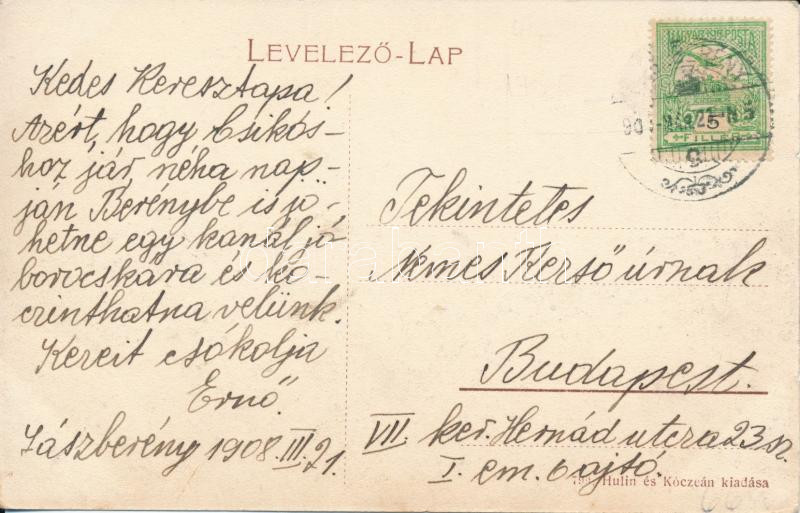 LEVELEZŐ-LAP
MAGYAR KIR. POSTA
5
FILLÉR
Kedes Keresztapa!
Azért, hogy Csikós-
hoz jár, néha nap-
ján Berénybe is jö-
hetne egy kanál jó
borocskára és ko-
czinthatna velünk.
Kezeit csókolja
Ernő.
Jászberény 1908. III. 21.
Tekintetes
Nemes Rezső úrnak
Budapest.
VII. ker. Hernád utcza 23 sz.
I. em. 6 ajtó.
Hulin és Kóczeán kiadása